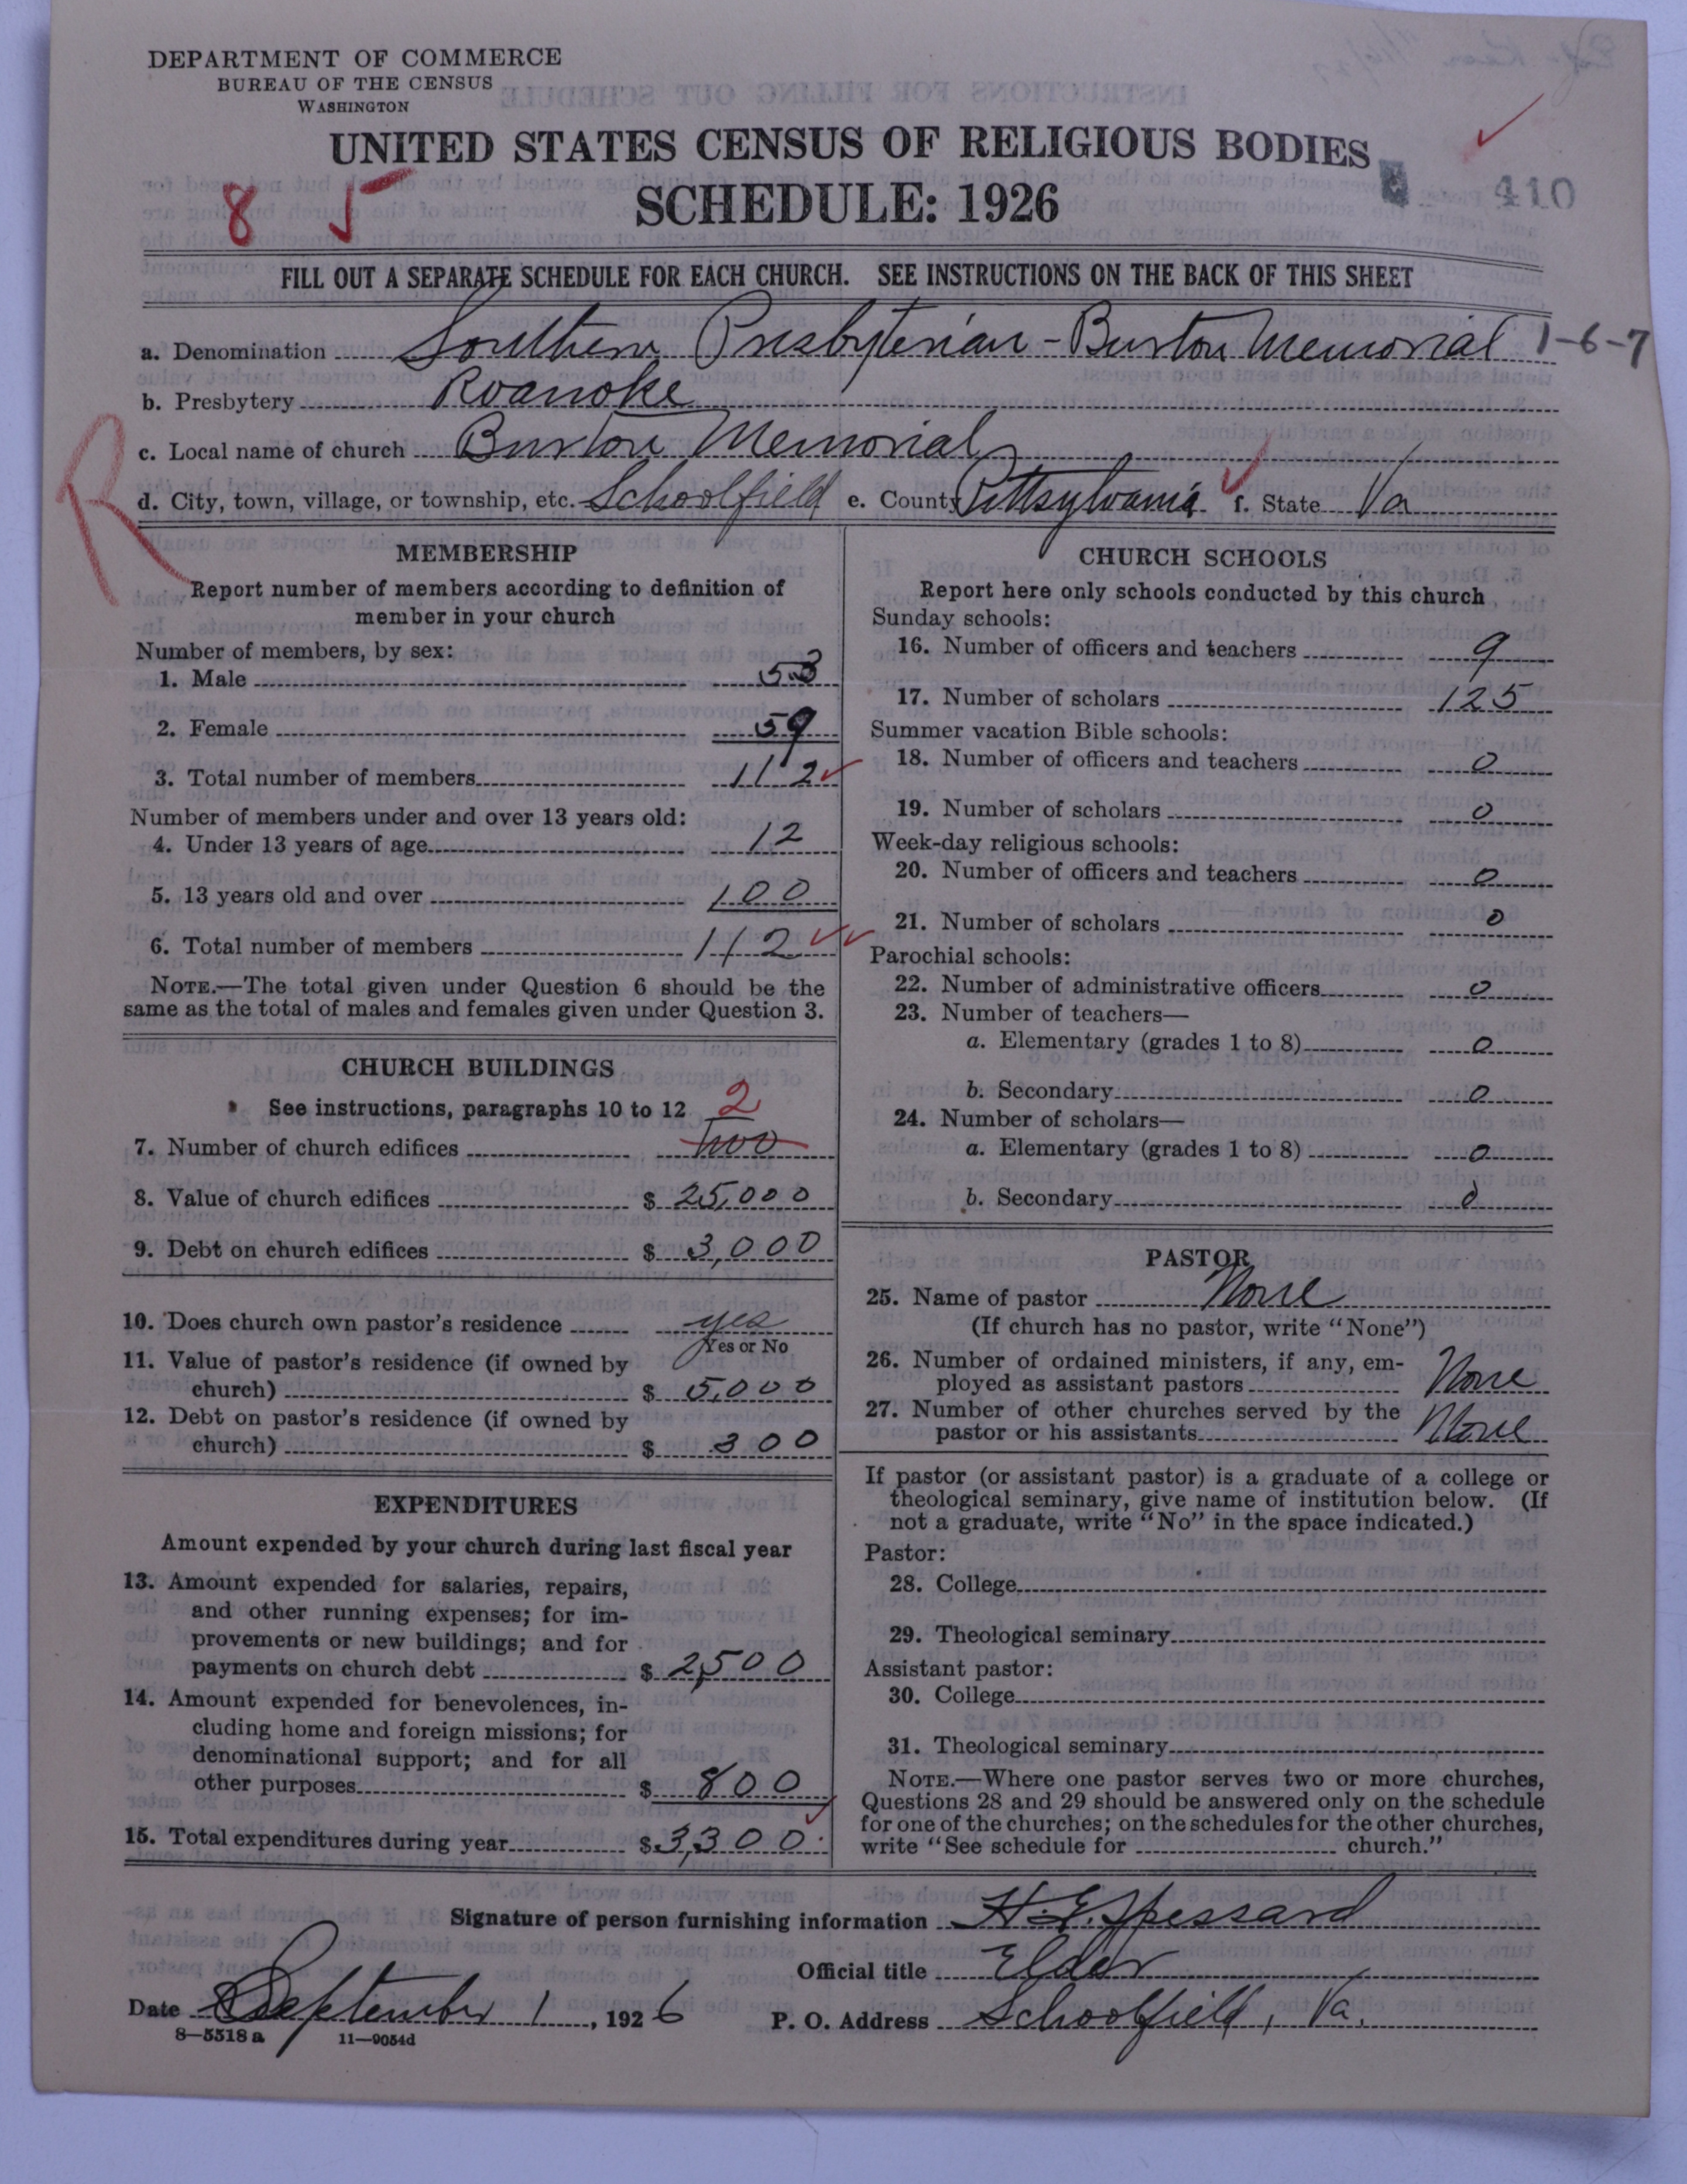 DEPARTMENT OF COMMERCE
BUREAU OF THE CENSUS
WASHINGTON
UNITED STATES CENSUS OF RELIGIOUS BODIES
SCHEDULE: 1926
8 5
410
FILL OUT A SEPARATE SCHEDULE FOR EACH CHURCH. SEE INSTRUCTIONS ON THE BACK OF THIS SHEET
a. Denomination Southern Presbyterian - Burton Memorial 1-6-7
b. Presbytery Roanoke
c. Local name of church Burton Memorial
R
d. City, town, village, or township, etc. Schoolfield e. County Pittsylvania f. State Va
MEMBERSHIP
Report number of members according to definition of
member in your church
Number of members, by sex:
1. Male 53
2. Female 59
3. Total number of members 112
Number of members under and over 13 years old:
4. Under 13 years of age 12
5. 13 years old and over 100
6. Total number of members 112
NOTE.—The total given under Question 6 should be the
same as the total of males and females given under Question 3.
CHURCH BUILDINGS
See instructions, paragraphs 10 to 12 2
7. Number of church edifices two
8. Value of church edifices $ 25,000
9. Debt on church edifices $ 3,000
10. Does church own pastor's residence yes
Yes or No
11. Value of pastor's residence (if owned by
church) $ 5,000
12. Debt on pastor's residence (if owned by
church) $ 300
EXPENDITURES
Amount expended by your church during last fiscal year
13. Amount expended for salaries, repairs,
and other running expenses; for im-
provements or new buildings; and for
payments on church debt $ 2,500
14. Amount expended for benevolences, in-
cluding home and foreign missions; for
denominational support; and for all
other purposes $ 800
15. Total expenditures during year $ 3,300
CHURCH SCHOOLS
Report here only schools conducted by this church
Sunday schools:
16. Number of officers and teachers 9
17. Number of scholars 125
Summer vacation Bible schools:
18. Number of officers and teachers 0
19. Number of scholars 0
Week-day religious schools:
20. Number of officers and teachers 0
21. Number of scholars 0
Parochial schools:
22. Number of administrative officers 0
23. Number of teachers—
a. Elementary (grades 1 to 8) 0
b. Secondary 0
24. Number of scholars—
a. Elementary (grades 1 to 8) 0
b. Secondary 0
PASTOR
25. Name of pastor None
(If church has no pastor, write "None")
26. Number of ordained ministers, if any, em-
ployed as assistant pastors None
27. Number of other churches served by the
pastor or his assistants None
If pastor (or assistant pastor) is a graduate of a college or
theological seminary, give name of institution below. (If
not a graduate, write "No" in the space indicated.)
Pastor:
28. College
29. Theological seminary
Assistant pastor:
30. College
31. Theological seminary
NOTE.—Where one pastor serves two or more churches,
Questions 28 and 29 should be answered only on the schedule
for one of the churches; on the schedules for the other churches,
write "See schedule for church."
Signature of person furnishing information H. E. Spessard
Official title Elder
Date September 1, 1926 P. O. Address Schoolfield, Va.
8—5518 a 11—9054d